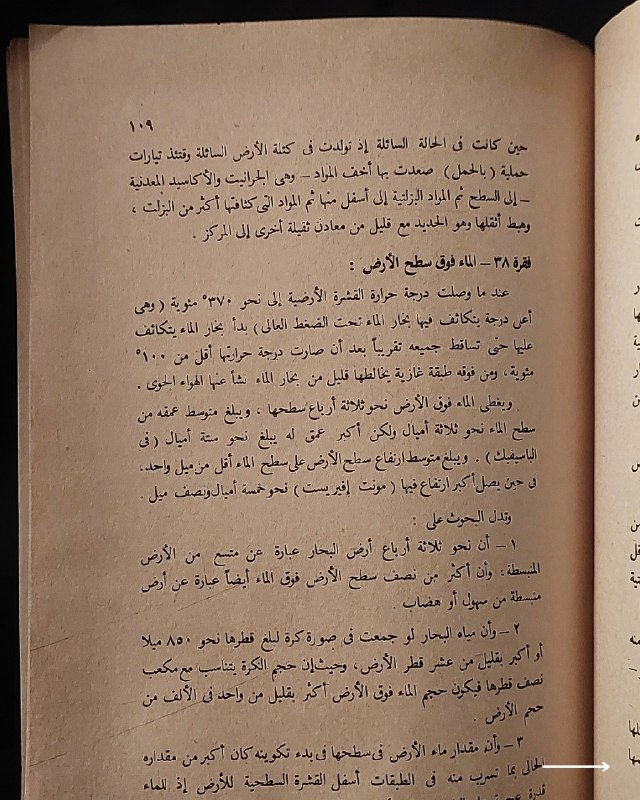 ١٠٩
حين كانت فى الحالة السائلة إذ تولدت فى كتلة الأرض السائلة وقتئذ تيارات
حملية ( بالحمل ) صعدت بها أخف المواد – وهى الجرانيت والأكاسيد المعدنية
– إلى السطح ثم المواد البزلتية إلى أسفل منها ثم المواد التى كثافتها أكثر من البزلت ،
وهبط أثقلها وهو الحديد مع قليل من معادن ثقيلة أخرى إلى المركز .
فقرة ٣٨ – الماء فوق سطح الأرض :
عند ما وصلت درجة حرارة القشرة الأرضية إلى نحو ٣٧٠° مئوية ( وهى
أعلى درجة يتكاثف فيها بخار الماء تحت الضغط العالى ) بدأ بخار الماء يتكاثف
عليها حتى تساقط جميعه تقريباً بعد أن صارت درجة حرارتها أقل من ١٠٠°
مئوية ، ومن فوقه طبقة غازية يخالطها قليل من بخار الماء نشأ عنها الهواء الجوى .
ويغطى الماء فوق الأرض نحو ثلاثة أرباع سطحها ، ويبلغ متوسط عمقه من
سطح الماء نحو ثلاثة أميال ولكن أكبر عمق له يبلغ نحو ستة أميال ( فى
الباسيفيك ) . ويبلغ متوسط ارتفاع سطح الأرض على سطح الماء أقل من ميل واحد ،
فى حين يصل أكبر ارتفاع فيها ( مونت إفيريست ) نحو خمسة أميال ونصف ميل .
وتدل البحوث على :
١ – أن نحو ثلاثة أرباع أرض البحار عبارة عن متسع من الأرض
المنبسطة ، وأن أكثر من نصف سطح الأرض فوق الماء أيضاً عبارة عن أرض
منبسطة من سهول أو هضاب .
٢ – وأن مياه البحار لو جمعت فى صورة كرة لبلغ قطرها نحو ٨٥٠ ميلا
أو أكبر بقليل من عشر قطر الأرض ، وحيث إن حجم الكرة يتناسب مع مكعب
نصف قطرها فيكون حجم الماء فوق الأرض أكثر بقليل من واحد فى الألف من
حجم الأرض .
٣ – وأن مقدار ماء الأرض فى سطحها فى بدء تكوينه كان أكبر من مقداره
الحالى بما تسرب منه فى الطبقات أسفل القشرة السطحية للأرض إذ للماء
قدرة